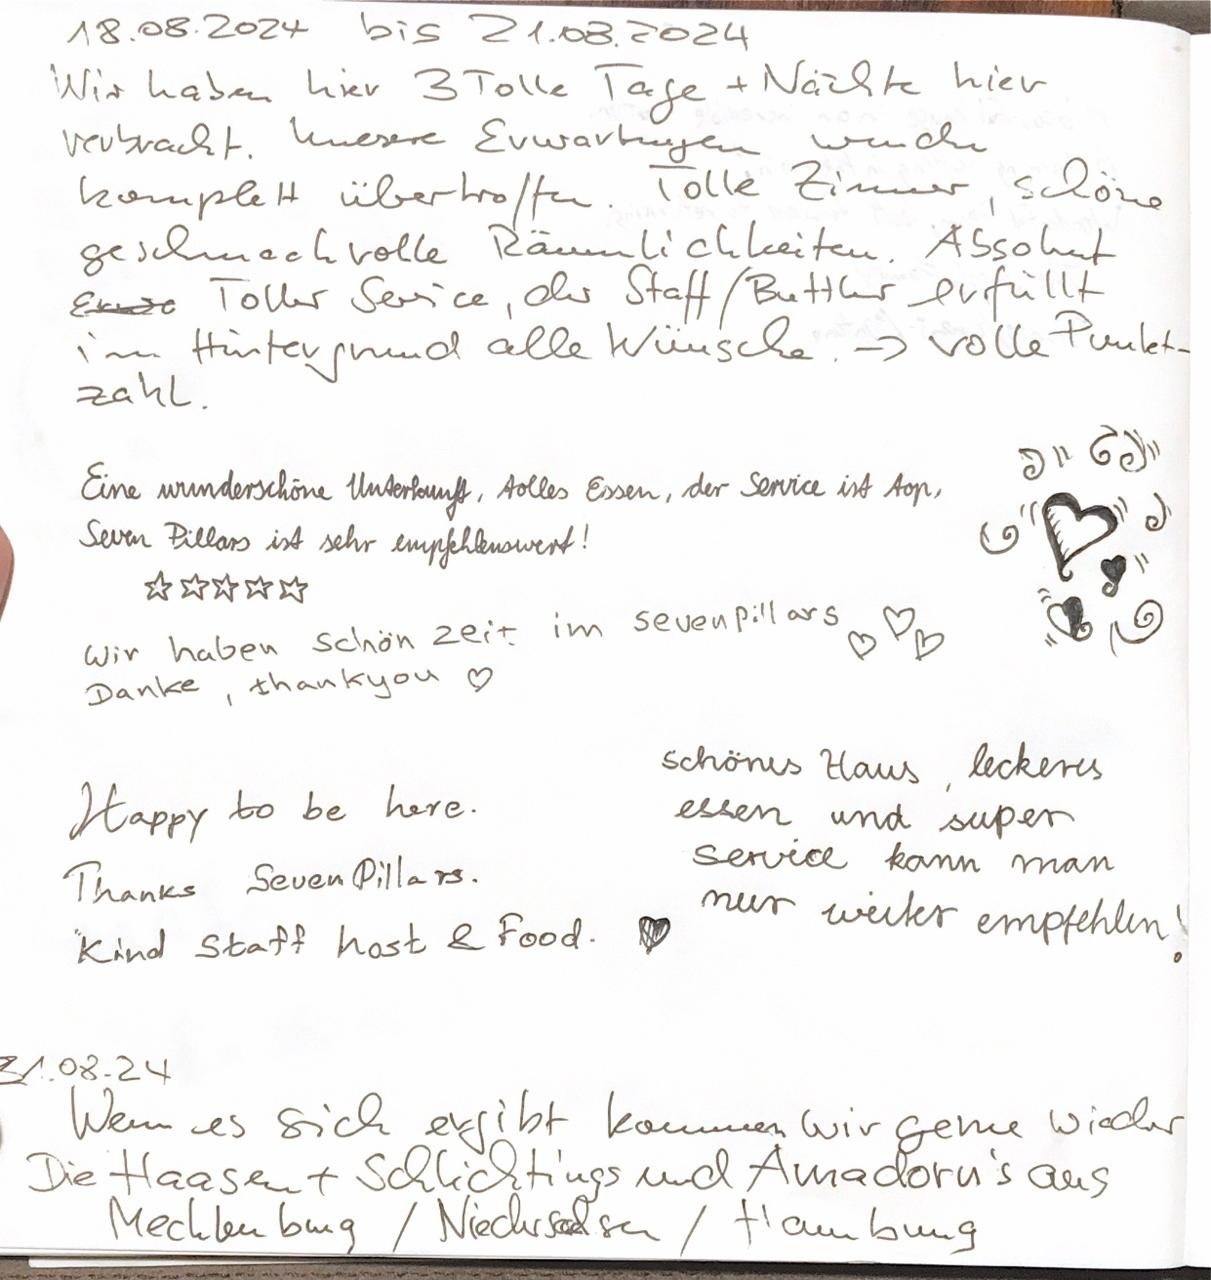 18.08.2024 bis 21.08.2024
Wir haben hier 3 Tolle Tage + Nächte hier
verbracht. Unsere Erwartungen wurde
komplett übertroffen. Tolle Zimmer, schöne
geschmackvolle Räumlichkeiten. Absolut
Toller Service, der Staff/Buttler erfüllt
im Hintergrund alle Wünsche. → volle Punkt-
zahl.
Eine wunderschöne Unterkunft, tolles Essen, der Service ist top,
Seven Pillars ist sehr empfehlenswert!
☆☆☆☆☆
Wir haben schön zeit im sevenpillars ♡♡♡
Danke, thankyou ♡
Happy to be here.
Thanks SevenPillars.
Kind Staff host & Food. ♥
schönes Haus, leckeres
essen und super
service kann man
nur weiter empfehlen!
31.08.24
Wenn es sich ergibt kommen wir gerne wieder
Die Haasen + Schlichtings und Amadoru's aus
Mecklenburg / Niedersachsen / Hamburg